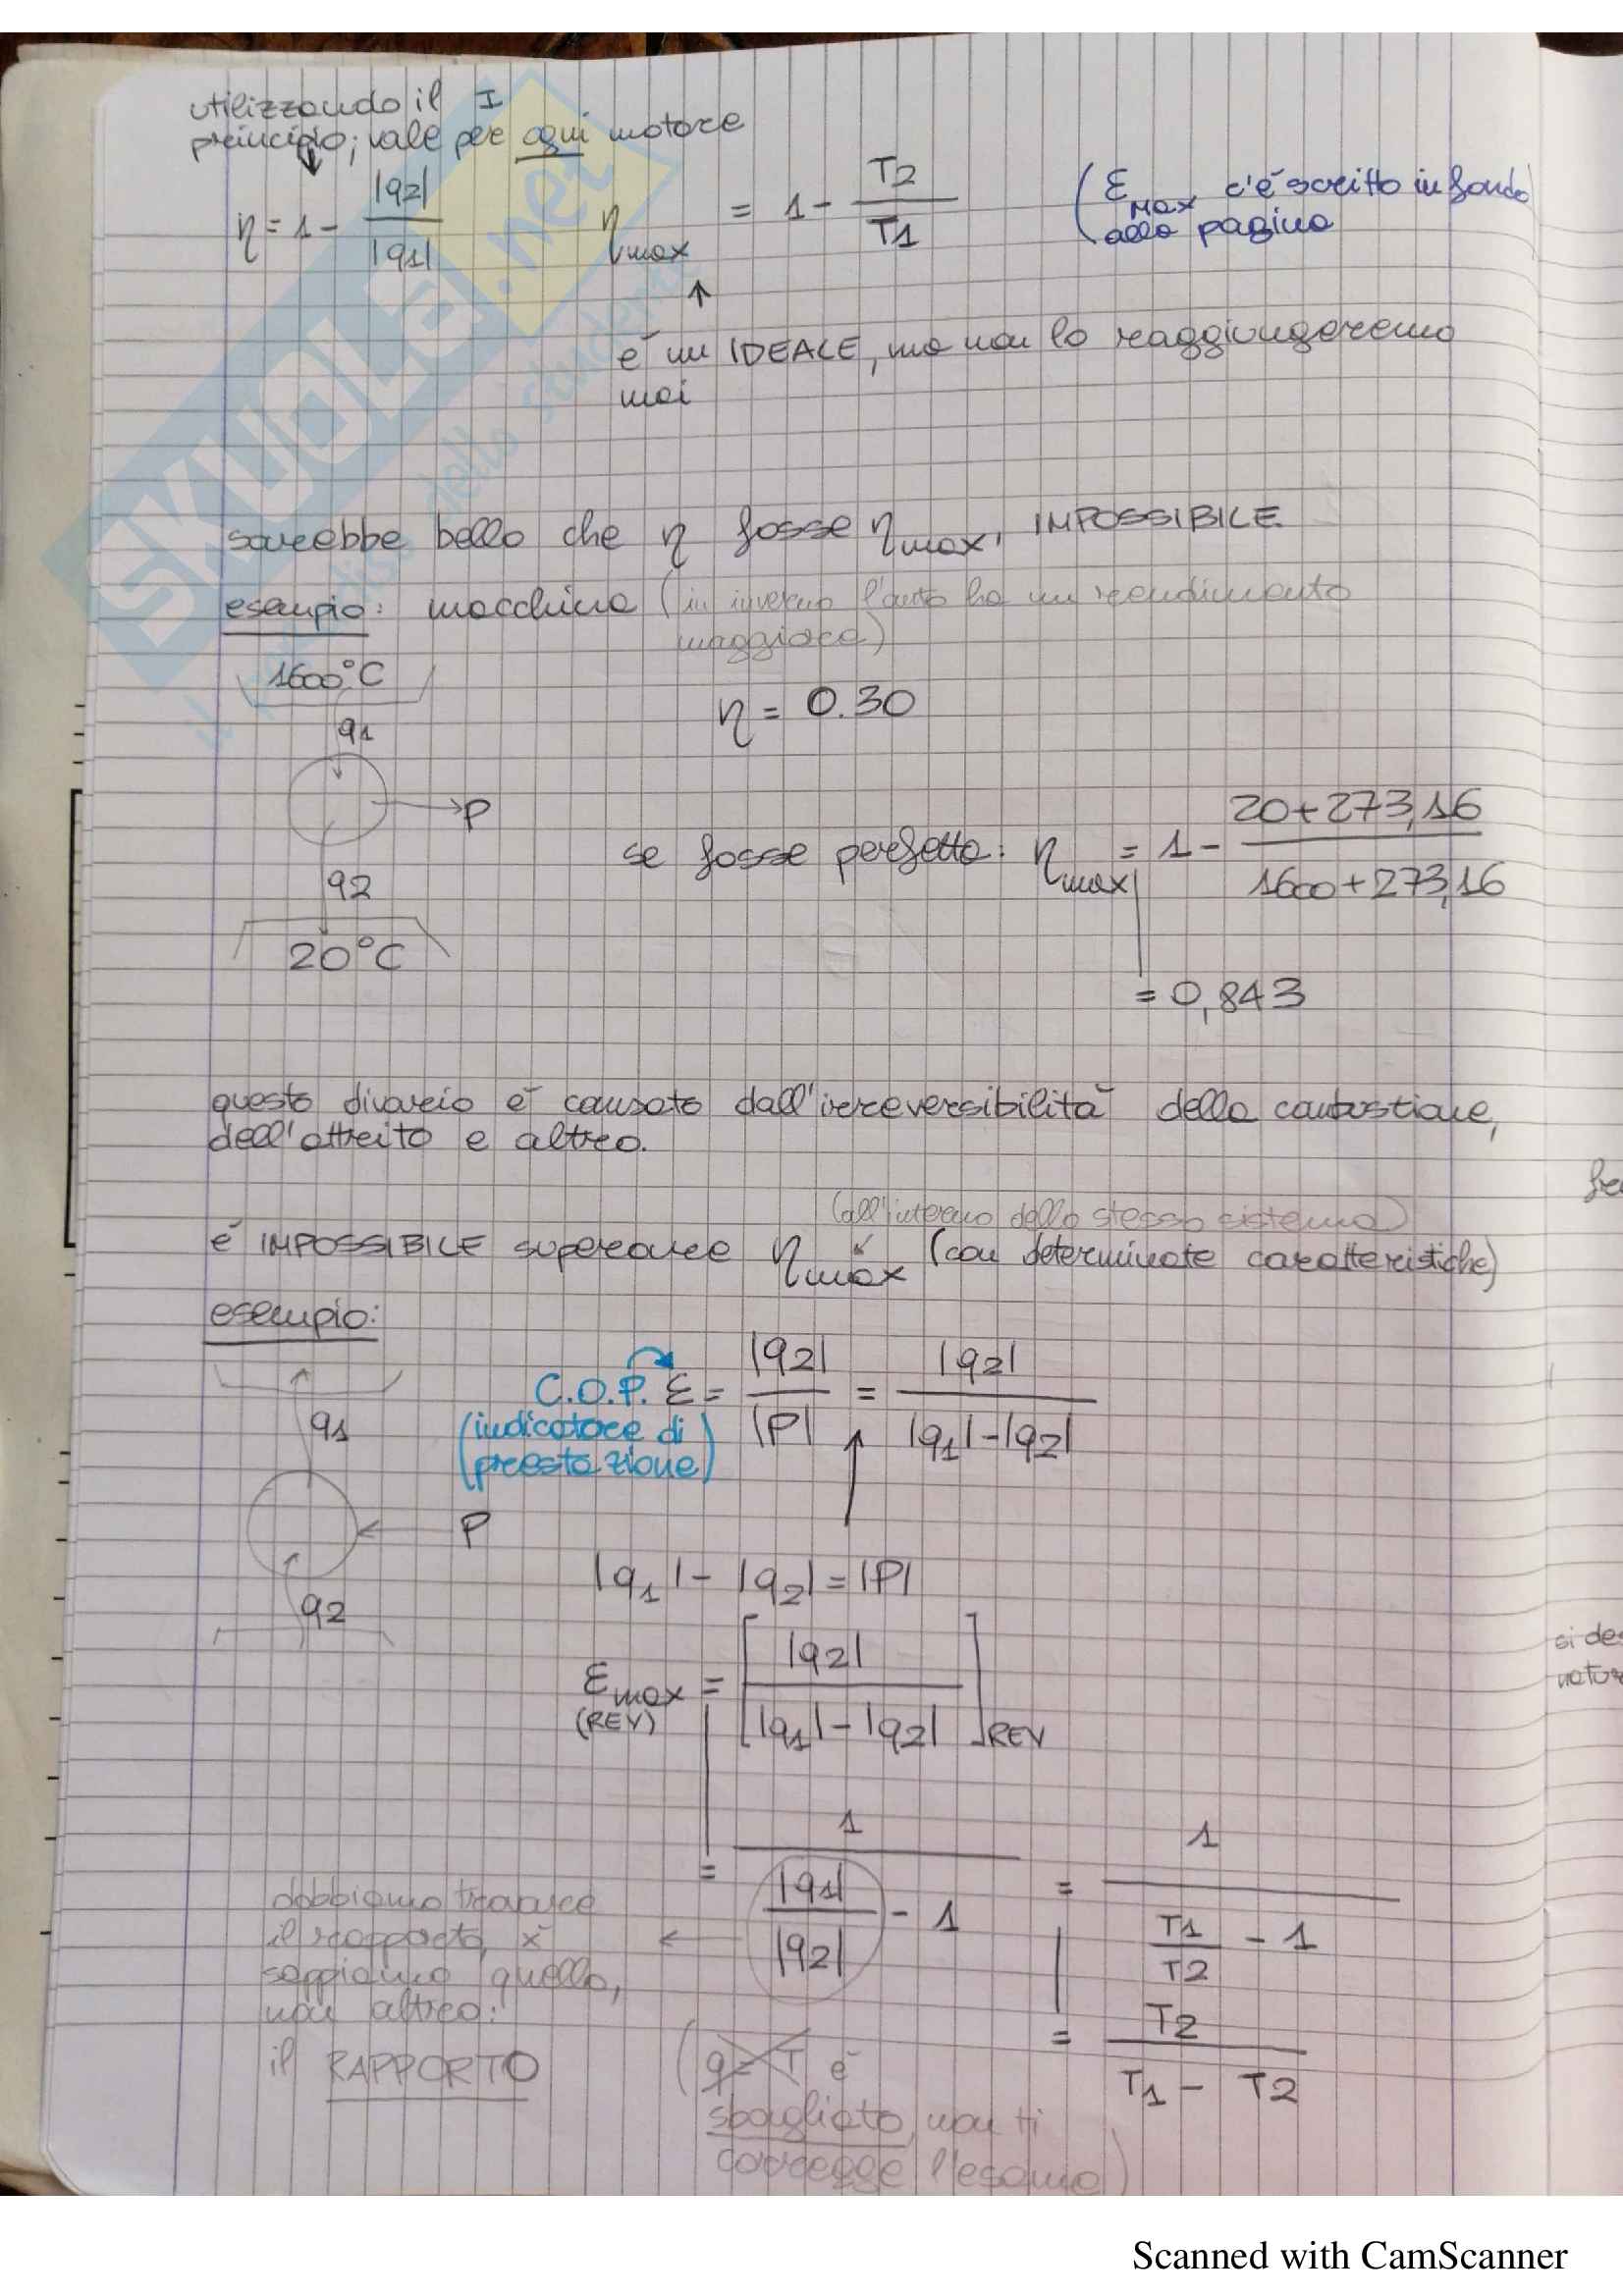 utilizzando il I
principio; vale per ogni motore
η = 1 - |q2| / |q1|
η max = 1 - T2 / T1
(ε MAX c'è scritto in fondo
alla pagina
è un IDEALE, ma non lo raggiungeremo
mai
sarebbe bello che η fosse η max, IMPOSSIBILE
esempio: macchina (in inverno l'auto ha un rendimento
maggiore)
1600°C
q1
η = 0.30
P
se fosse perfetto: η max = 1 - 20+273,16 / 1600+273,16
q2
20°C
= 0,843
questo divario è causato dall'irreversibilità della combustione,
dell'attrito e altro.
(all'interno dello stesso sistema)
è IMPOSSIBILE superare η max (con determinate caratteristiche)
esempio:
C.O.P. ε = |q2| / |P| = |q2| / |q1|-|q2|
(indicatore di
prestazione)
q1
P
|q1| - |q2| = |P|
q2
ε max (REV) = [ |q2| / |q1|-|q2| ] REV
= 1 / |q1| / |q2| - 1 = 1 / T1 / T2 - 1
dobbiamo trovare
il rapporto, x
sappiamo quello,
non altro:
il RAPPORTO
= T2 / T1 - T2
(q=T è
sbagliato, non ti
corregge l'esame)
si de
natur
SKUOLA.net
Scanned with CamScanner